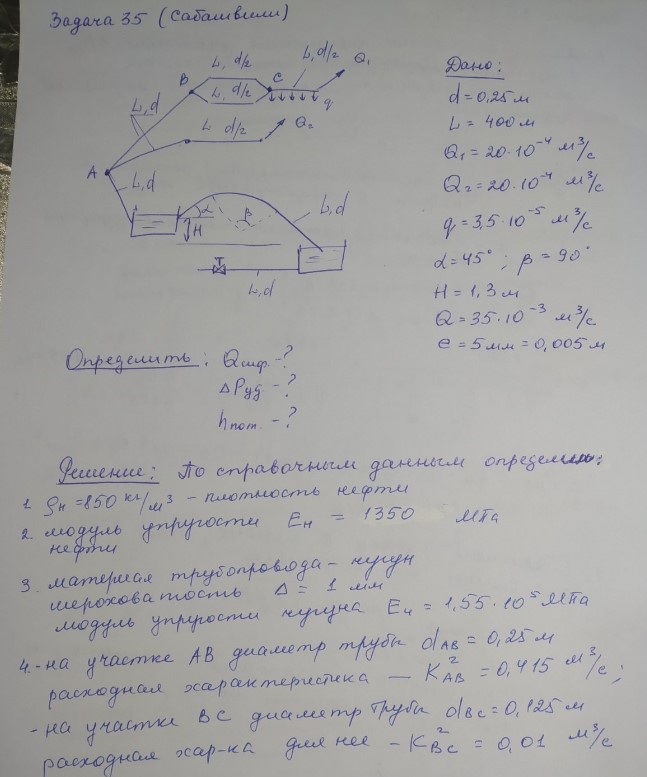 Задача 35 (Сабашвили)
L, d/2
L, d/2
Q₁
B
C
L, d/2
q
L, d
L
d/2
Q₂
A
L, d
α
β
H
L, d
L, d
Дано:
d = 0,25 м
L = 400 м
Q₁ = 20·10⁻⁴ м³/с
Q₂ = 20·10⁻⁴ м³/с
q = 3,5·10⁻⁵ м³/с
α = 45°; β = 90°
H = 1,3 м
Q = 35·10⁻³ м³/с
e = 5 мм = 0,005 м
Определить: Qсиф. - ?
ΔPуд. - ?
hпот. - ?
Решение: По справочным данным определяем:
1. ρн = 850 кг/м³ – плотность нефти
2. модуль упругости Eн = 1350 МПа
нефти
3. материал трубопровода – чугун
шероховатость Δ = 1 мм
модуль упругости чугуна Eч = 1,55·10⁵ МПа
4. - на участке AB диаметр трубы dAB = 0,25 м
расходная характеристика — K²AB = 0,415 м³/с;
- на участке BC диаметр трубы dBC = 0,125 м
расходная хар-ка для нее – K²BC = 0,01 м³/с